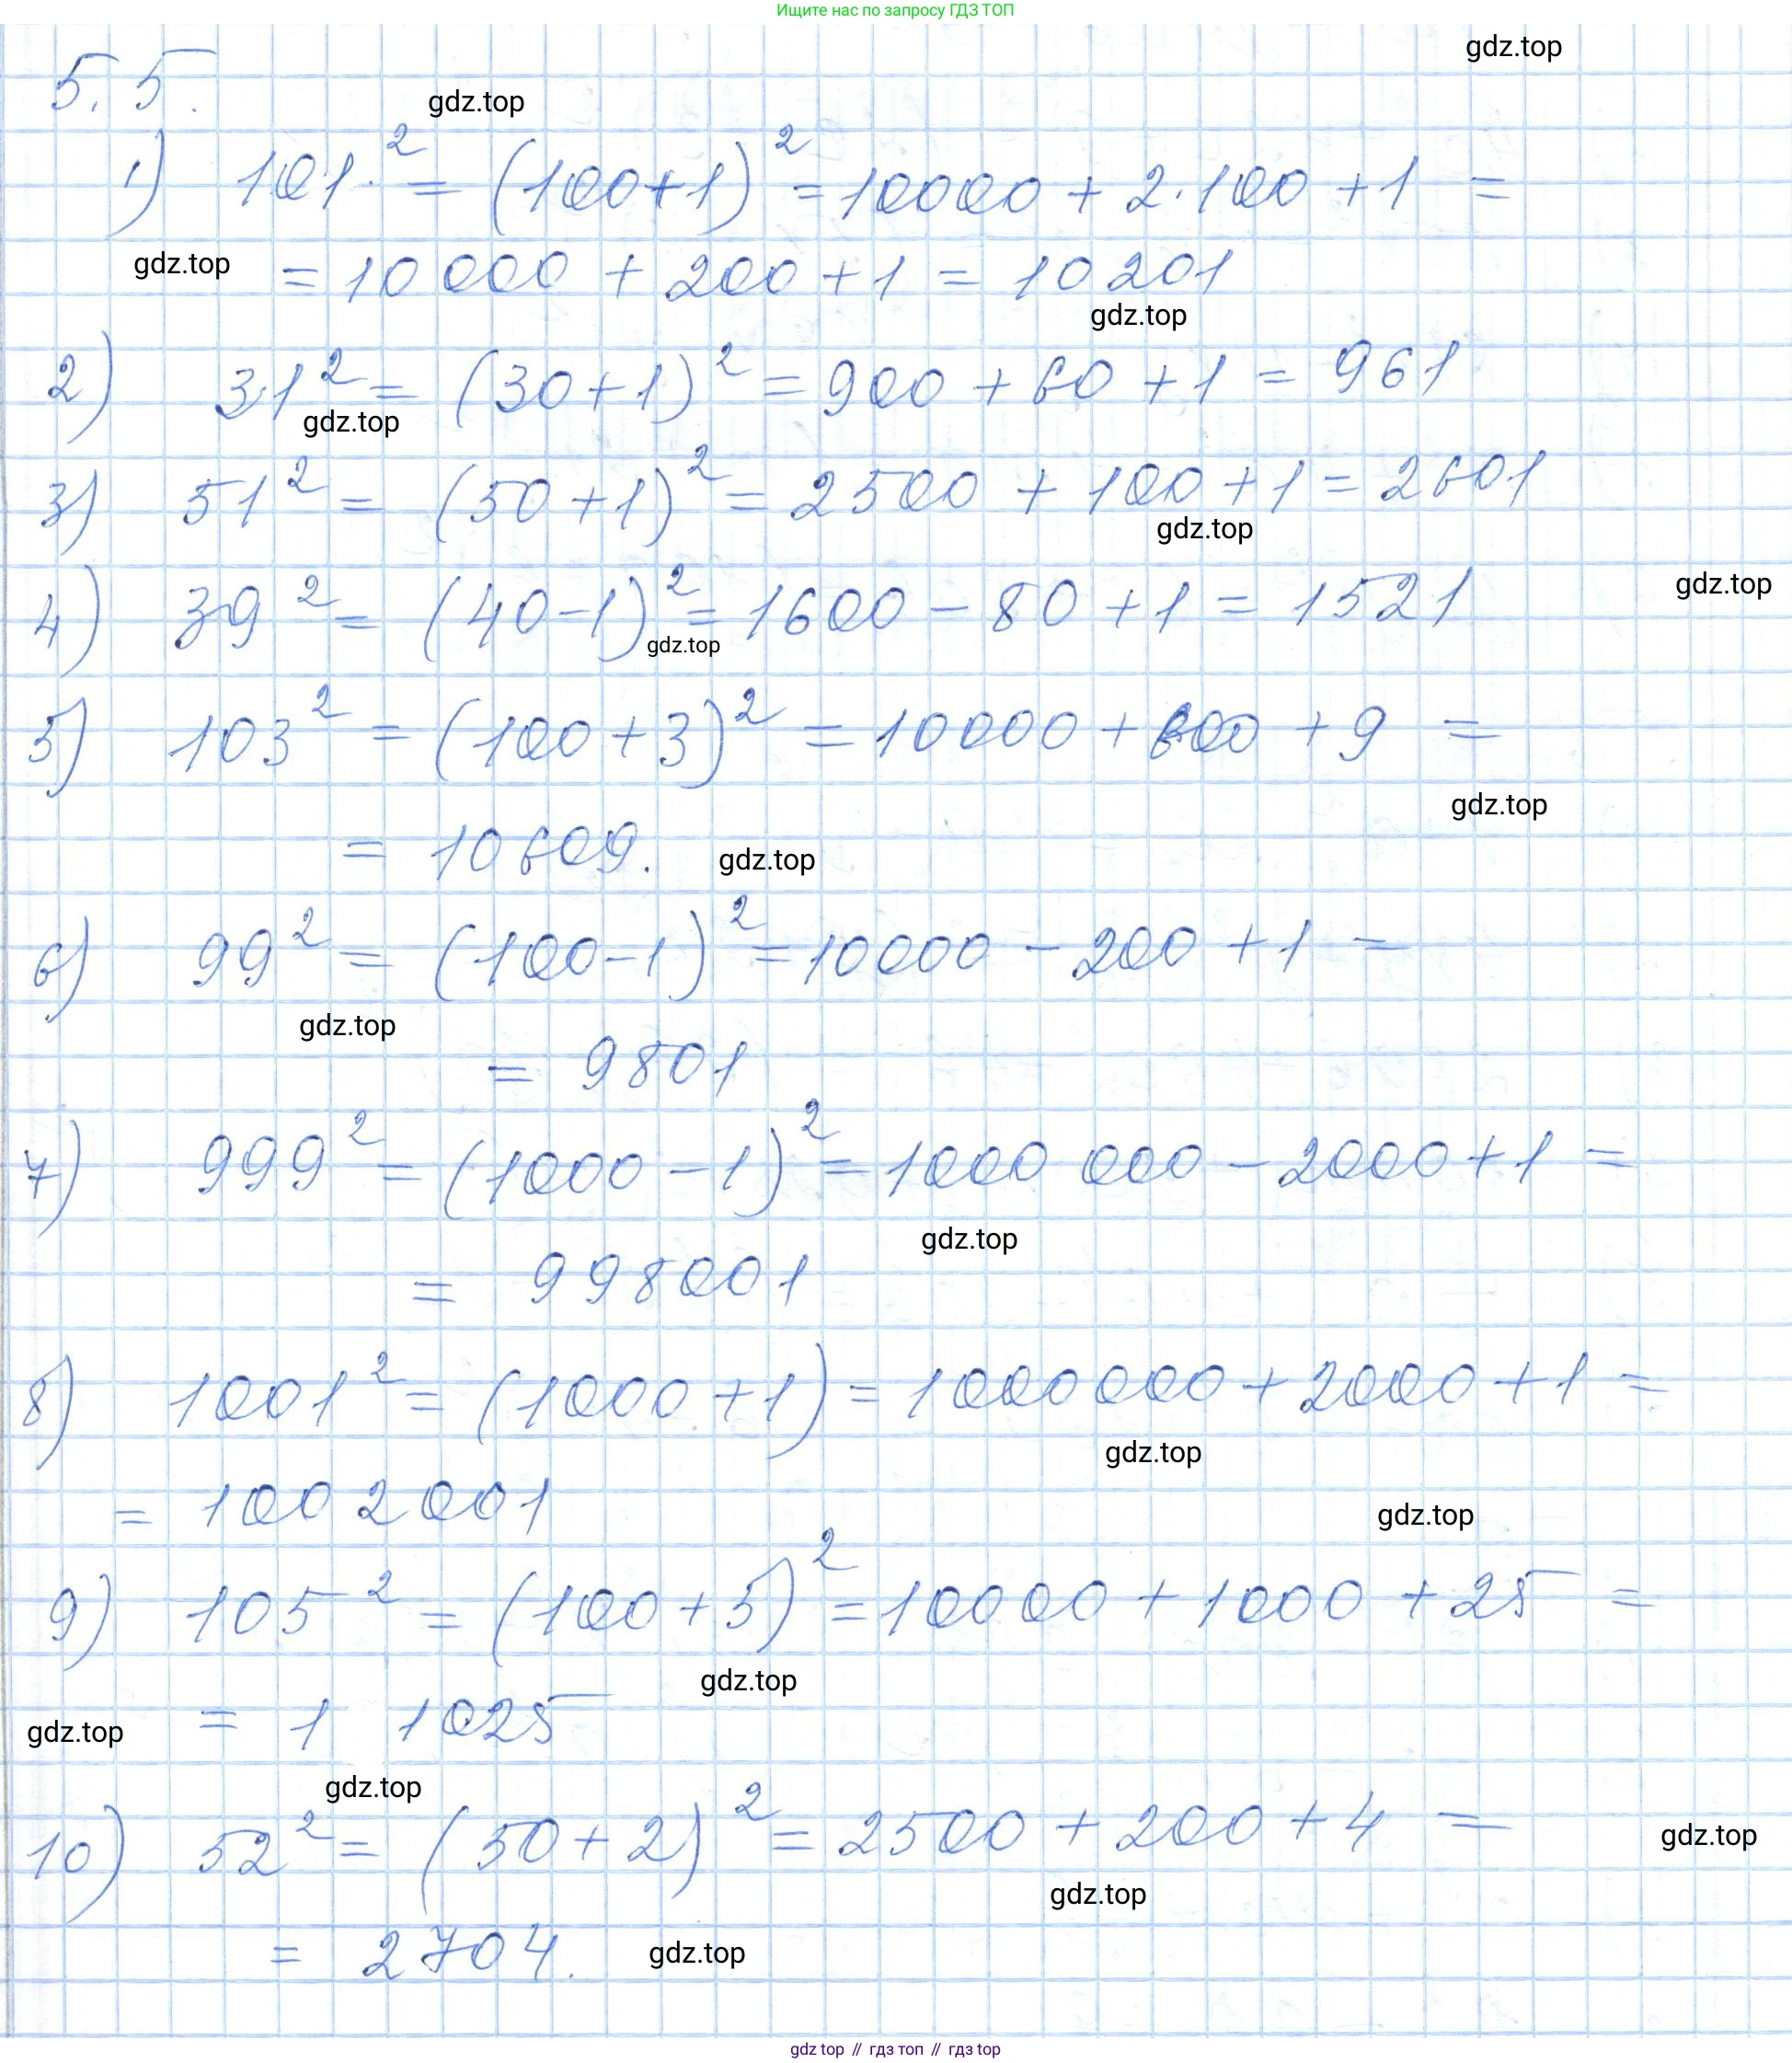 Ищите нас по запросу ГДЗ ТОП
gdz.top
5.5.
gdz.top
1) 101² = (100+1)² = 10000 + 2·100 + 1 =
gdz.top = 10 000 + 200 + 1 = 10 201
gdz.top
2) 31² = (30+1)² = 900 + 60 + 1 = 961
gdz.top
3) 51² = (50+1)² = 2500 + 100 + 1 = 2601
gdz.top
gdz.top
4) 39² = (40-1)² = 1600 - 80 + 1 = 1521
gdz.top
5) 103² = (100+3)² = 10000 + 600 + 9 =
gdz.top
= 10609. gdz.top
6) 99² = (100-1)² = 10000 - 200 + 1 =
gdz.top
= 9801
7) 999² = (1000-1)² = 1000 000 - 2000 + 1 =
gdz.top
= 998001
8) 1001² = (1000+1) = 1000000 + 2000 + 1 =
gdz.top
= 1002001
gdz.top
9) 105² = (100+5)² = 10000 + 1000 + 25 =
gdz.top
gdz.top = 1 1025
gdz.top
10) 52² = (50+2)² = 2500 + 200 + 4 =
gdz.top
gdz.top
= 2704. gdz.top
gdz top // гдз топ // гдз top